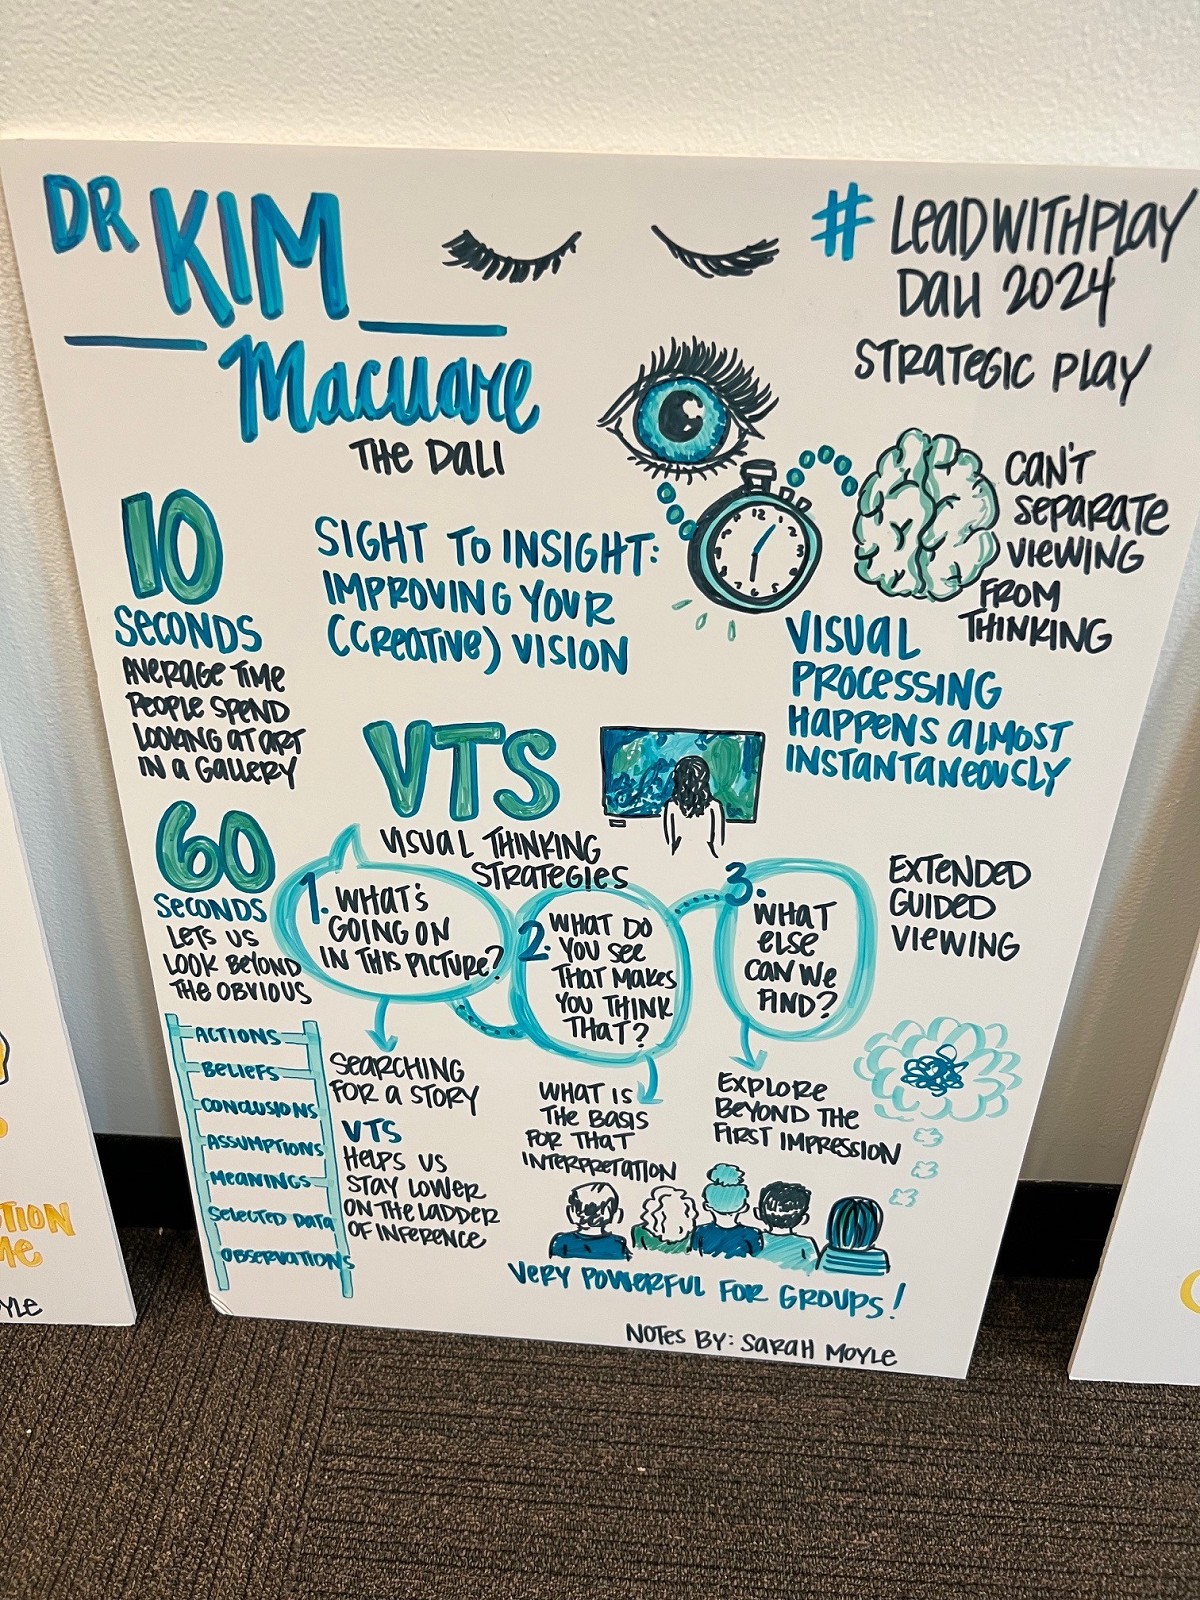 DR KIM
Macuare
THE DALI
# LEADWITHPLAY
DALI 2024
STRATEGIC PLAY
10
SECONDS
AVERAGE TIME
PEOPLE SPEND
LOOKING AT ART
IN A GALLERY
SIGHT TO INSIGHT:
IMPROVING YOUR
(CREATIVE) VISION
12
1
2
3
5
6
7
CAN'T
SEPARATE
VIEWING
FROM
THINKING
VISUAL
PROCESSING
HAPPENS ALMOST
INSTANTANEOUSLY
60
SECONDS
LETS US
LOOK BEYOND
THE OBVIOUS
VTS
VISUAL THINKING
STRATEGIES
1. WHAT'S
GOING ON
IN THIS PICTURE?
2. WHAT DO
YOU SEE
THAT MAKES
YOU THINK
THAT?
3.
WHAT
ELSE
CAN WE
FIND?
EXTENDED
GUIDED
VIEWING
ACTIONS
BELIEFS
CONCLUSIONS
ASSUMPTIONS
MEANINGS
SELECTED DATA
OBSERVATIONS
SEARCHING
FOR A STORY
VTS
HELPS US
STAY LOWER
ON THE LADDER
OF INFERENCE
WHAT IS
THE BASIS
FOR THAT
INTERPRETATION
EXPLORE
BEYOND THE
FIRST IMPRESSION
VERY POWERFUL FOR GROUPS!
NOTES BY: SARAH MOYLE